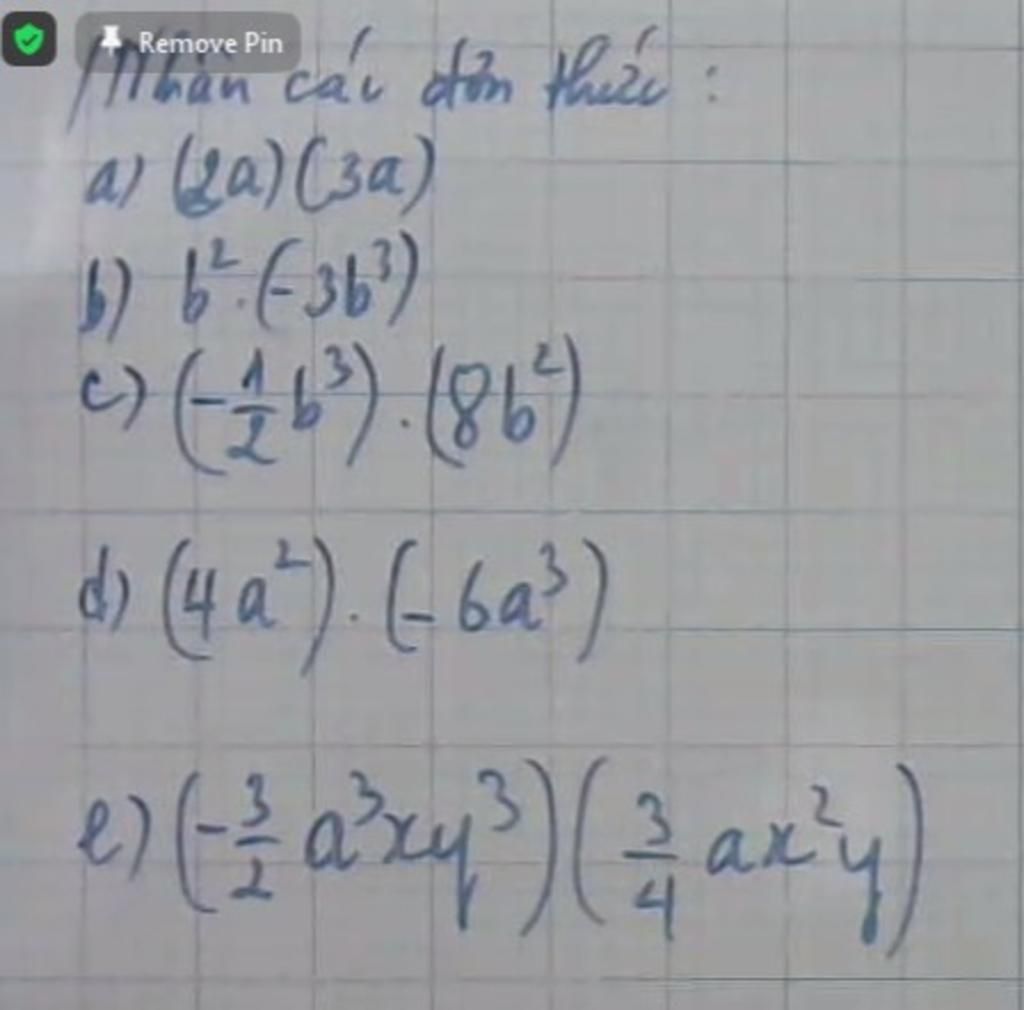 Remove Pin
Nhân các đơn thức :
a) (2a)(3a)
b) b².(-3b³)
c) (-1/2 b³).(8b²)
d) (4a²).(-6a³)
e) (-3/2 a³xy³)(3/4 ax²y)